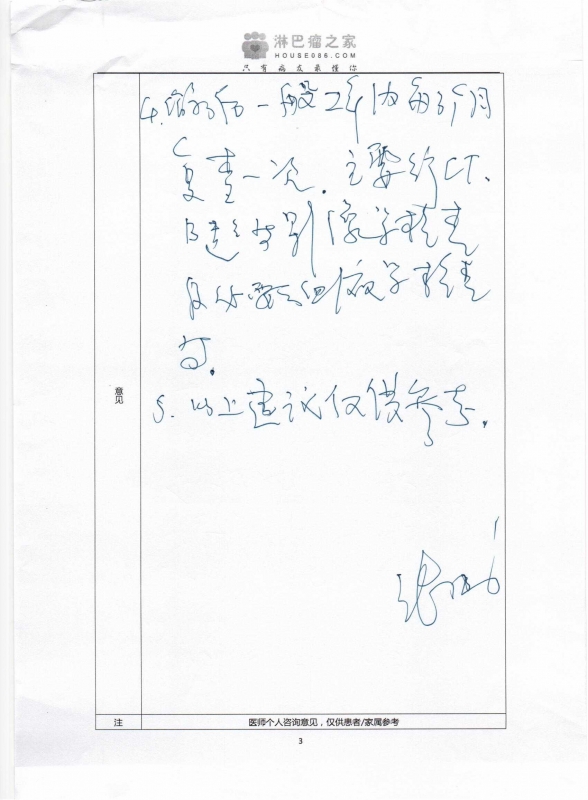 淋巴瘤之家
HOUSE086.COM
只有病友最懂你
4. 病一般2年内每3个月
复查一次. 主要行CT、
影像学检查
及必要的血液学检查
等.
意见
5. 以上建议仅供参考.
注
医师个人咨询意见，仅供患者/家属参考
3